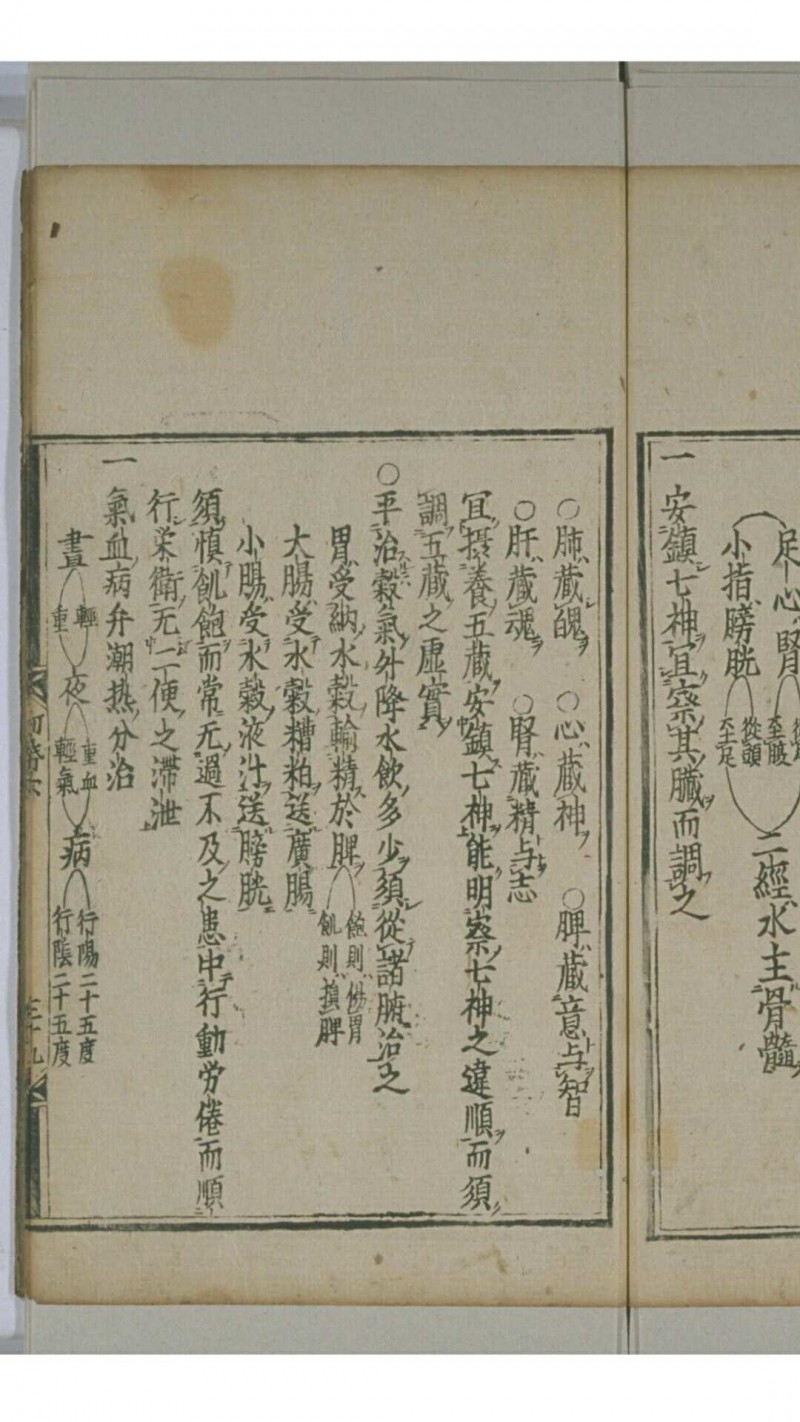 足心腎
小指膀胱
從頭至足
二經水主骨髓
一 安鎮七神宜察其臓而調之
○肺蔵魄 ○心蔵神 ○脾蔵意与智
○肝蔵魂 ○腎蔵精与志
宜摂養五蔵安鎮七神能明察七神之違順而須
調五蔵之虚實
○平治穀氣升降水飲多少須從諸腑治之
胃受納水穀輸精於脾
飽則傷胃
飢則損脾
大腸受水穀糟粕送廣腸
小腸受水穀液汁送膀胱
須慎飢飽而常无過不及之患中行動労倦而順
行栄衛无二便之滞泄
一 氣血病弁潮热分治
晝 輕重 夜 重血輕氣 病
行陽二十五度
行陰二十五度
三十九